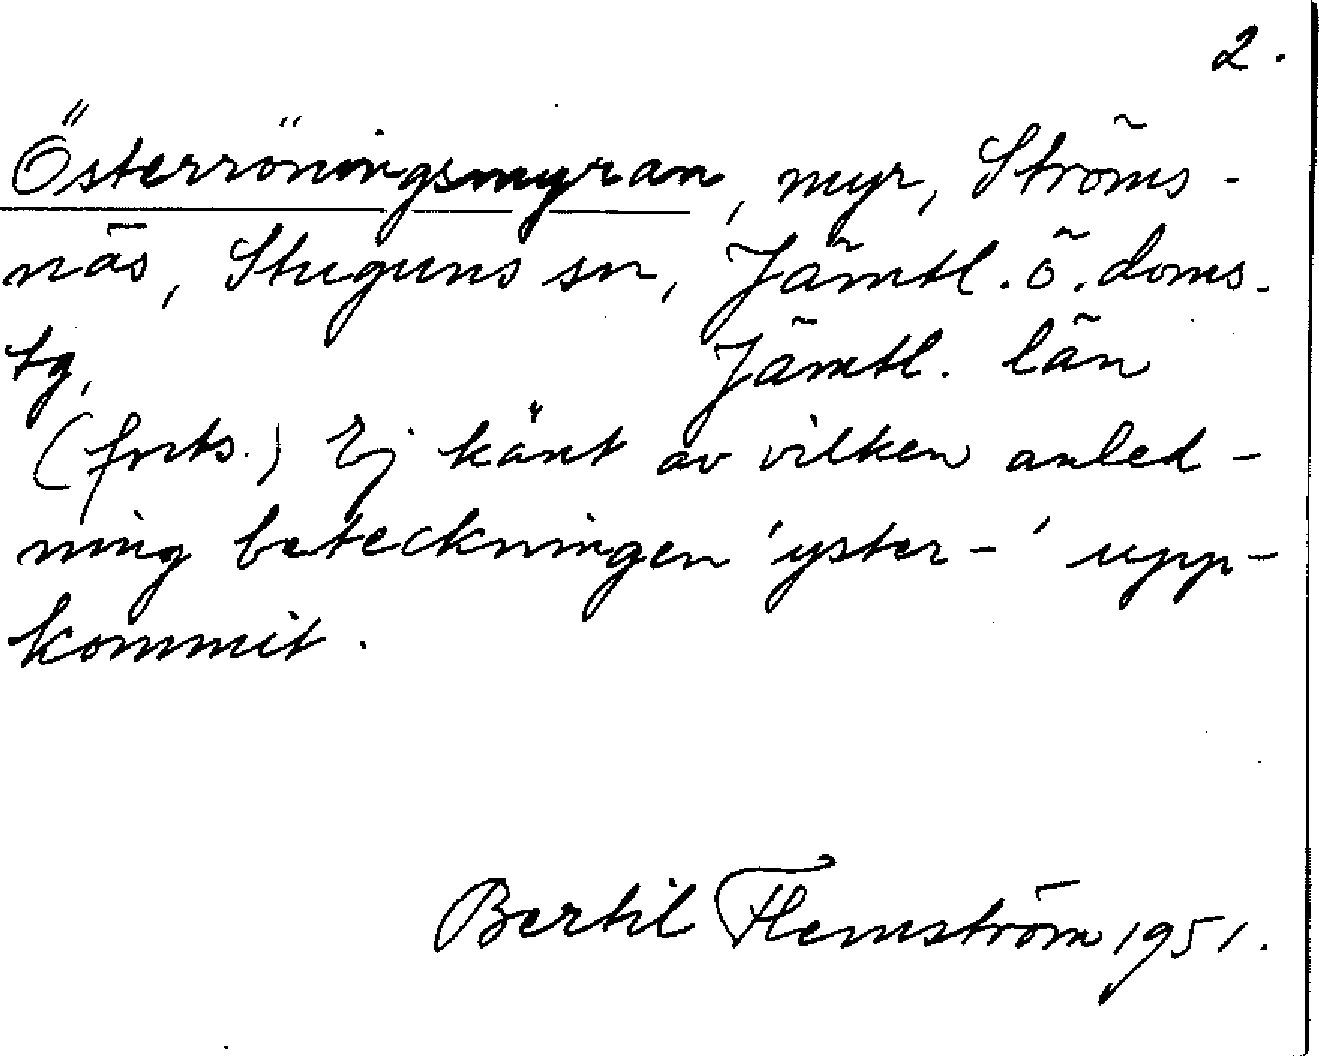 2.
Österröningsmyran, myr, Ströms-
näs, Stuguns sn, Jämtl. ö. doms.
tg, Jämtl. län
(forts.) Ej känt av vilken anled-
ning beteckningen 'yster-' upp-
kommit.
Bertil Flemström 1951.